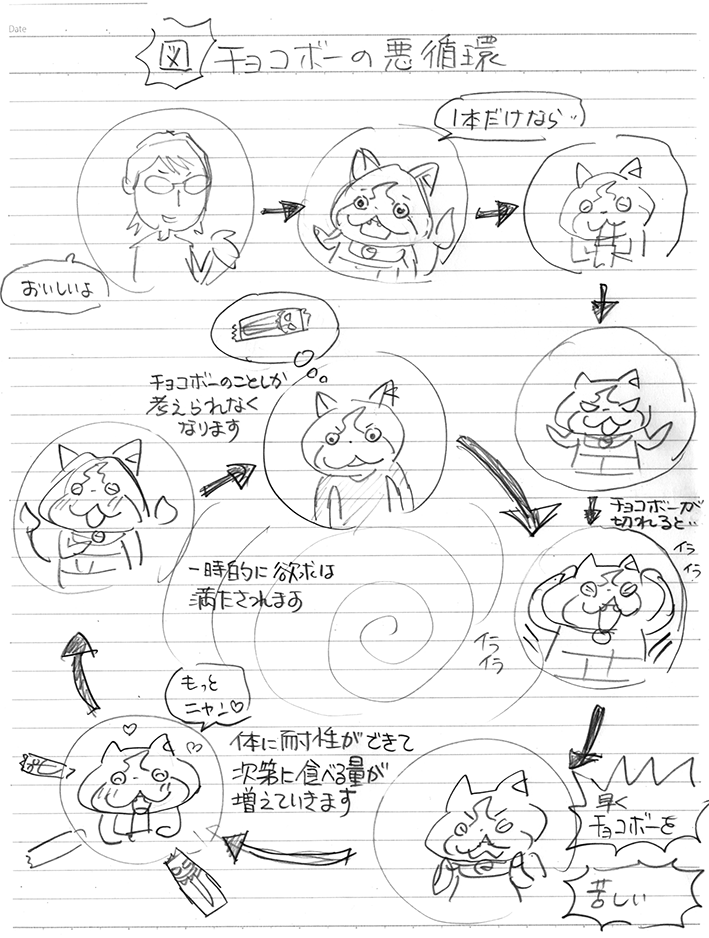 Date
図 チョコボーの悪循環
1本だけなら‥
おいしいよ
チョコボーのことしか
考えられなく
なります
チョコボーが
切れると‥
イラ
イラ
一時的に欲求は
満たされます
イラ
イラ
もっと
ニャン♡
体に耐性ができて
次第に食べる量が
増えていきます
早く
チョコボーを
苦しい